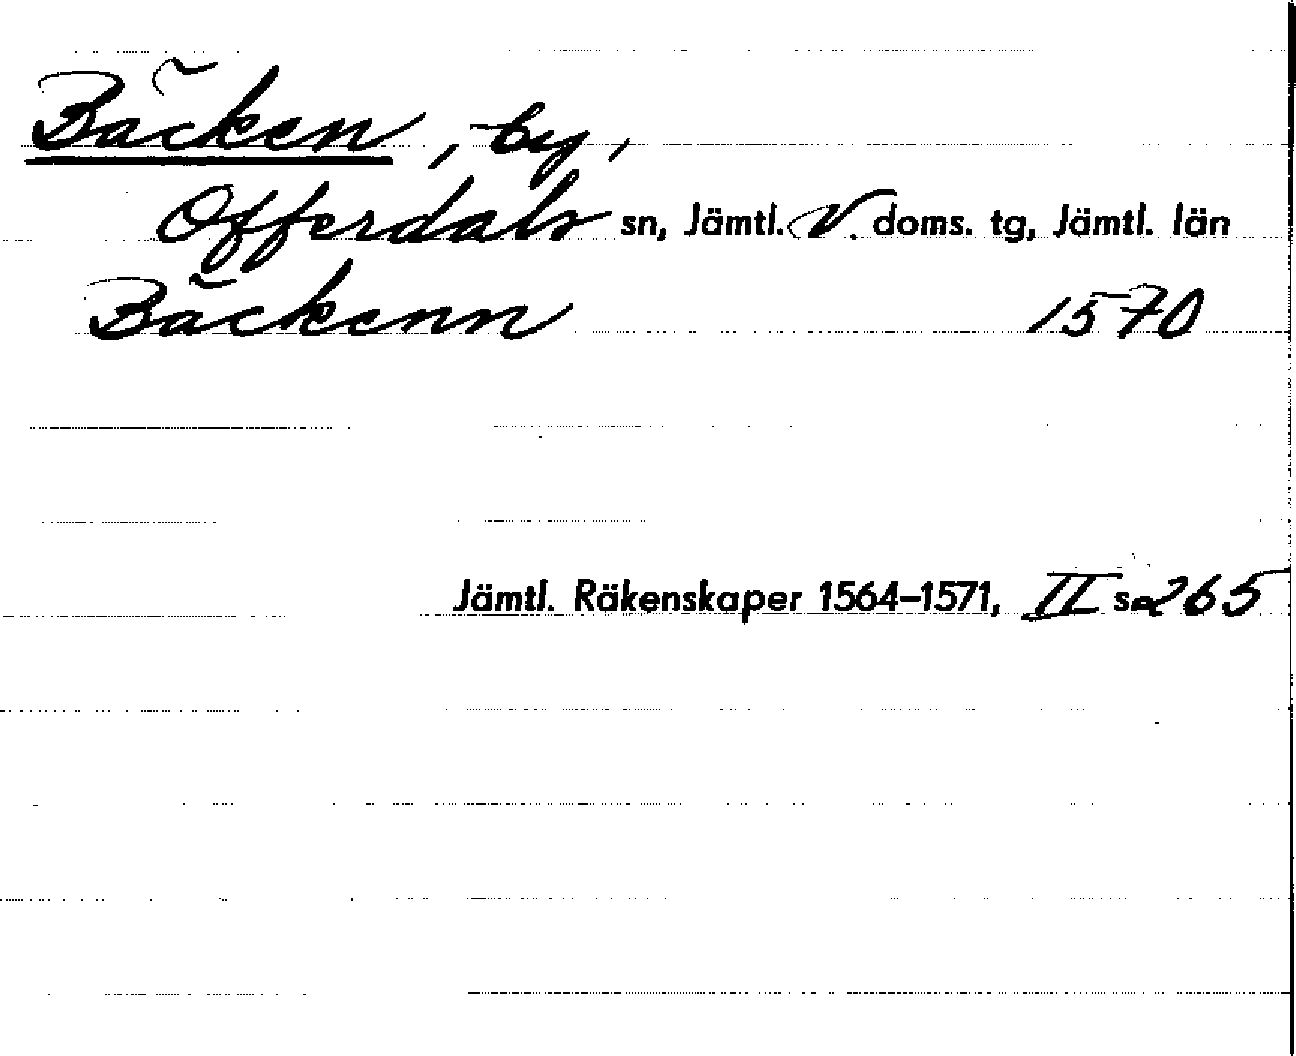 Bäcken, by,
Offerdals sn, Jämtl. V. doms. tg, Jämtl. län
Bäckenn 1570
Jämtl. Räkenskaper 1564–1571, II s. 265